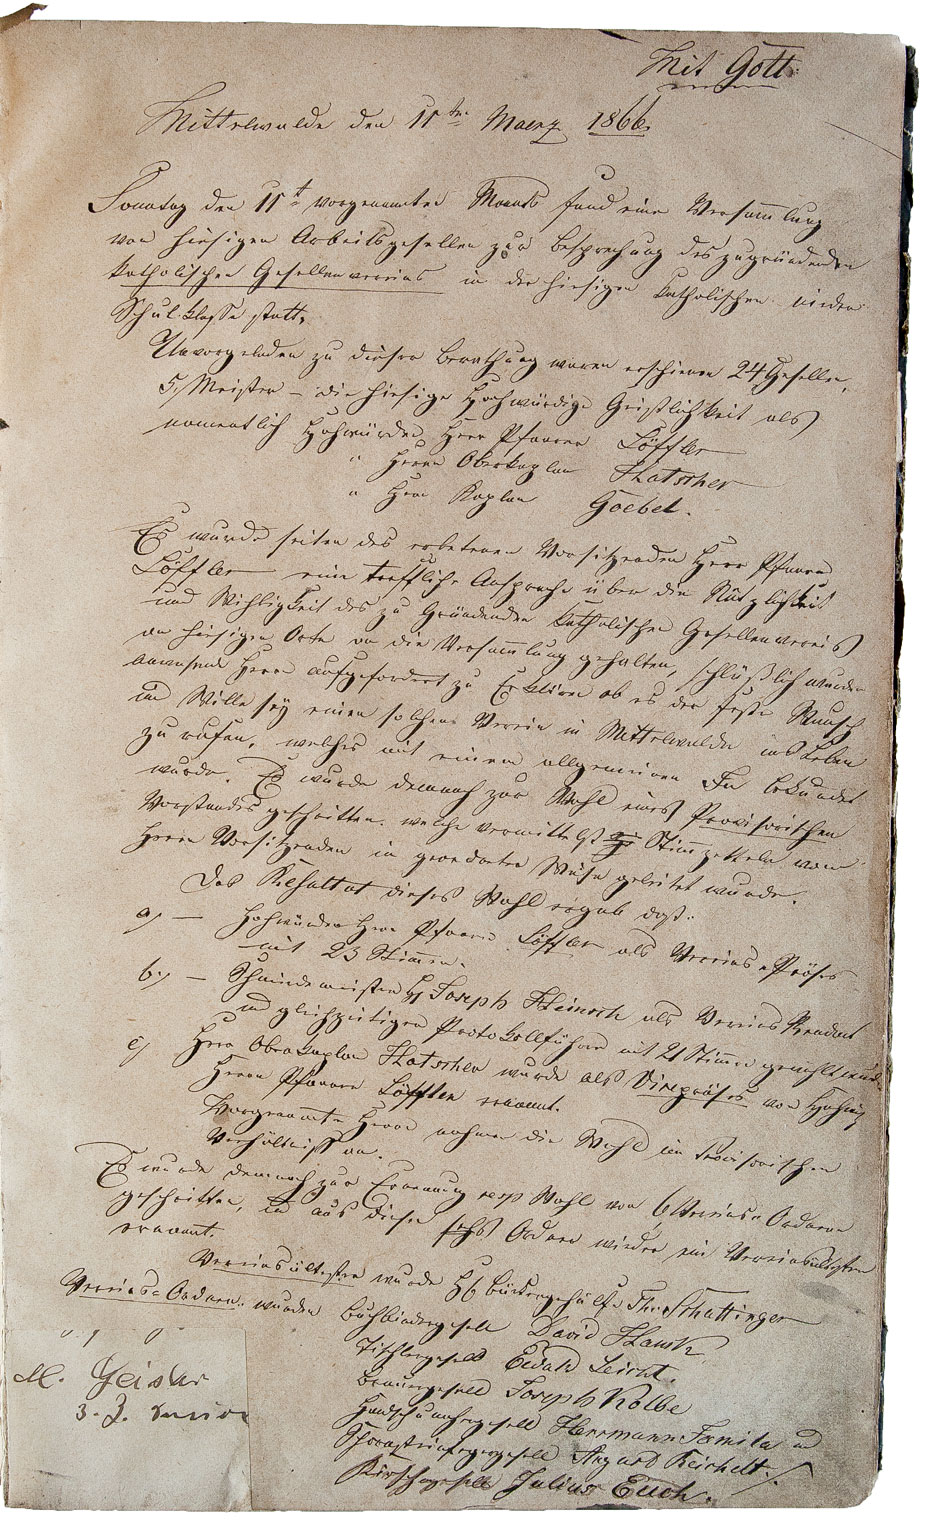 Mit Gott.
Mittelwalde den 11ten Maerz 1866.
Sonntag den 11t vorgenannten Monats fand eine Versammlung
von hiesigen Arbeitsgesellen zur Besprechung des zugründenden
katholischen Gesellenvereins in der hiesigen katholischen nieder
Schul-Klasse statt.
zu dieser Berathung waren erschienen 24 Gesellen,
5, Meister – die hiesige Hochwürdige Geistlichkeit als
namentlich Hochwürden Herr Pfarrer Löffler
" Herr Oberkaplan Hatscher
" Herr Kaplan Goebel.
Es wurde seiten des erbetenen Vorsitzenden Herr Pfarrer
Löffler eine treffliche Ansprache über die Nützlichkeit
und Wichtigkeit des zu Gründenden katholischen Gesellenvereins
an hiesigen Orte an die Versammlung gehalten, schlüßlich wurden
anwesende Herrn aufgefordert zu Erklären ob es der feste Wunsch
und Wille sey einen solchen Verein in Mittelwalde ins Leben
zu rufen, welches mit einem allgemeinen Ja bekundet
wurde. Es wurde demnach zur Wahl eines Provisorischen
Vorstandes geschritten, welche vermittelst Stimzetteln vom
Herrn Vorsitzenden in geordneter Weise geleitet wurde.
Das Resultat dieser Wahl ergab daß:
a, – Hochwürden Herr Pfarrer Löffler als Vereins-Präses
mit 23 Stimmen.
b, – Schmiedemeister H. Joseph Heinsch als Vereins Rendant
und gleichzeitigen Protokollführer mit 21 Stimmen gewählt wurde.
c, Herr Oberkaplan Hatscher wurde als Vicepräses von
Herrn Pfarrer Löffler ernannt.
Vorgenannte Herrn nahmen die Wahl im Provisorischen
Verhältniß an.
Es wurde demnach zur Ernennung resp Wahl von 6 Vereins-Ordner
geschritten, und aus diesen sechs Ordner wieder ein Vereinsältester
ernannt.
Vereinsältester wurde H. Theo Schattinger
Vereins-Ordner wurden Buchbindergesell David Hauck
Tischlergesell Ewald Leicht.
Brauergesell Joseph Kolbe
Handschumachergesell Herrmann Tomitza und
Schornsteinfegergesell August Reichelt.
Kürschnergesell Julius Euch.
M. Geisler
z. Z. Senior